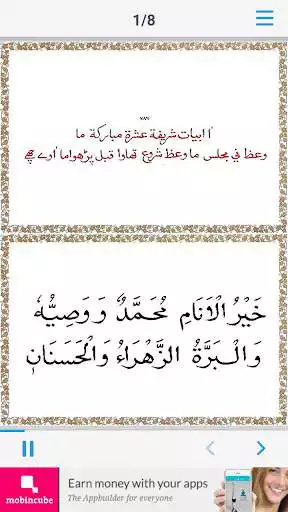 1/8
٧٨٦
اْ ابيات شريفة عشرة مباركة ما
وعظ في مجلس ما وعظ شروع تھاوا قبل پڑھواما اٰوے چھے
خَيْرُ الْاَنَامِ مُحَمَّدٌ وَوَصِيُّهٗ
وَالْبَرَّةُ الزَّهْرَاءُ وَالْحَسَنَانِ
mobincube
Earn money with your apps
The Appbuilder for everyone